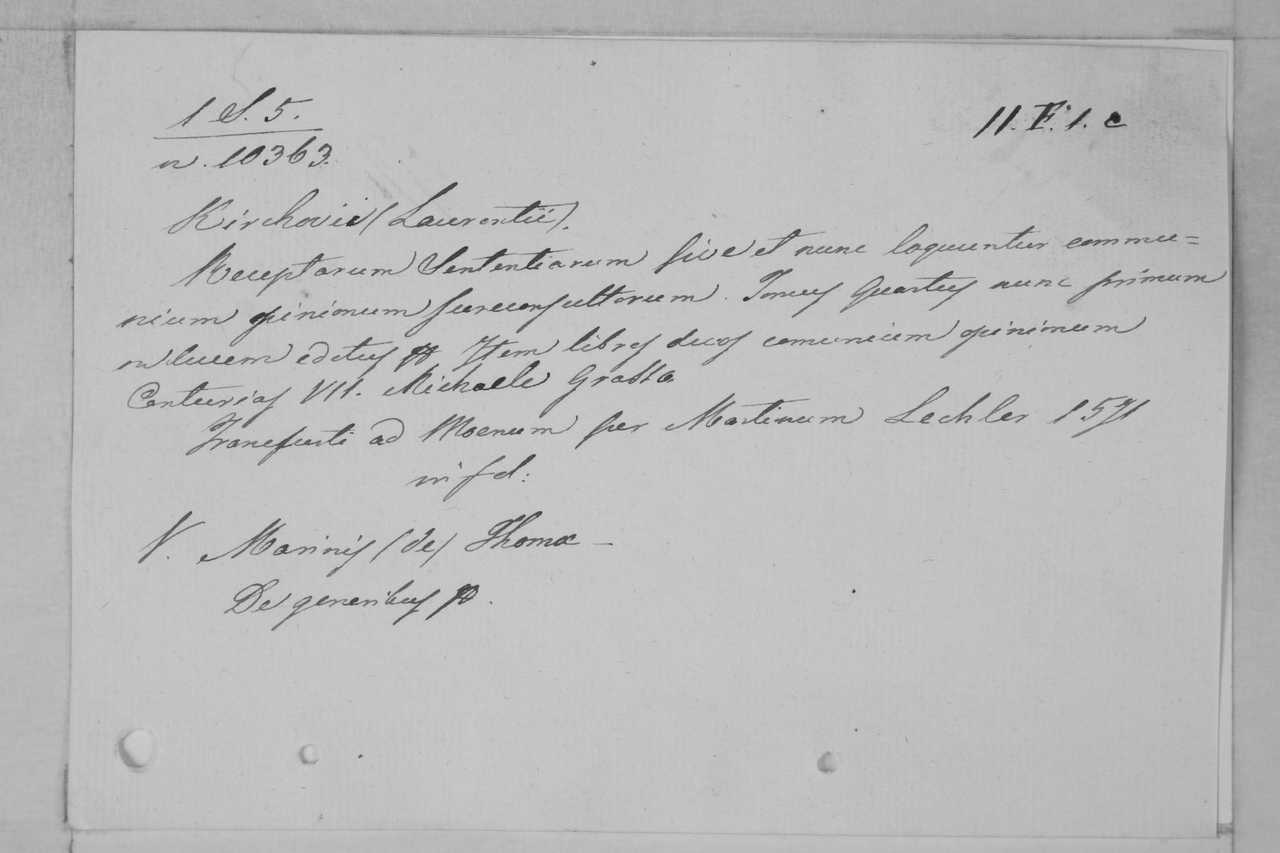 1 S. 5.
11. F. 1. c
n. 10363.
Kirchovii (Laurentii).
Receptarum Sententiarum sive et nunc loquuntur commu=
nium opinionum jureconsultorum. Tomus Quartus nunc primum
in lucem editus Item libros duos comunium opinionum
Centurias VII. Michaele Grasso
Francfurti ad Moenum per Martinum Lechler 1571
in fol:
V. Marinis (de) Thomæ –
De generibus